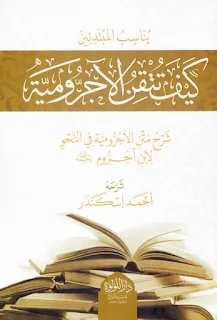 يناسب المبتدئين
كيف تتقن الآجرومية
شرح متن الآجرومية في النحو
لابن آجروم
شرحه
أحمد إسكندر
دار اللؤلؤة